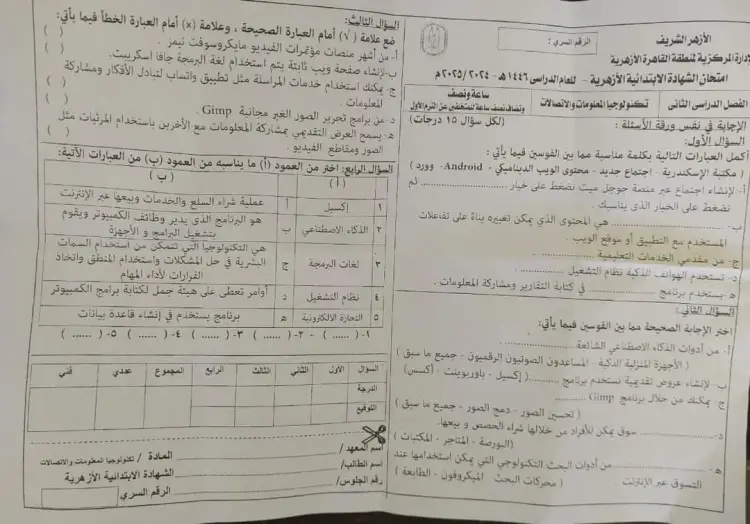 الأزهر الشريف
الإدارة المركزية لمنطقة القاهرة الأزهرية
الرقم السري :
امتحان الشهادة الابتدائية الأزهرية - للعام الدراسى ١٤٤٦هـ - ٢٠٢٤ / ٢٠٢٥م
الفصل الدراسى الثانى
تكنولوجيا المعلومات والاتصالات
ساعة ونصف
وتضاف نصف ساعة للمتخلفين عن الترم الأول
الإجابة في نفس ورقة الأسئلة :
(لكل سؤال ١٥ درجات)
السؤال الأول:
أكمل العبارات التالية بكلمة مناسبة مما بين القوسين فيما يأتى :
( مكتبة الإسكندرية - اجتماع جديد - محتوى الويب الديناميكي - Android - وورد )
أ- لإنشاء اجتماع عبر منصة جوجل ميت نضغط على خيار .......... ثم
نضغط على الخيار الذى يناسبك .
ب- .......... هي المحتوى الذي يمكن تغييره بناءً على تفاعلات
المستخدم مع التطبيق أو موقع الويب .
ج- من مقدمي الخدمات التعليمية ..........
د- تستخدم الهواتف الذكية نظام التشغيل ..........
هـ- يستخدم برنامج .......... في كتابة التقارير ومشاركة المعلومات .
السؤال الثانى:
اختر الإجابة الصحيحة مما بين القوسين فيما يأتي:
أ- من أدوات الذكاء الاصطناعي الشائعة ..........
( الأجهزة المنزلية الذكية - المساعدون الصوتيون الرقميون - جميع ما سبق )
ب- لإنشاء عروض تقديمية نستخدم برنامج .......... ( إكسيل - باوربوينت - أكسس)
ج- يمكنك من خلال برنامج Gimp ..........
( تحسين الصور - دمج الصور - جميع ما سبق )
د- .......... سوق يمكن للأفراد من خلالها شراء الحصص و بيعها.
(البورصة - المتاجر - المكتبات )
هـ- .......... من أدوات البحث التكنولوجي التي يمكن استخدامها عند
التسوق عبر الإنترنت . ( محركات البحث - الميكروفون - الطابعة )
السؤال الثالث:
ضع علامة ( √ ) أمام العبارة الصحيحة ، وعلامة (×) أمام العبارة الخطأ فيما يأتي:
أ- من أشهر منصات مؤتمرات الفيديو مايكروسوفت تيمز . ( )
ب- لإنشاء صفحة ويب ثابتة يتم استخدام لغة البرمجة جافا اسكريبت. ( )
ج- يمكنك استخدام خدمات المراسلة مثل تطبيق واتساب لتبادل الأفكار ومشاركة
المعلومات . ( )
د- من برامج تحرير الصور الغير مجانية Gimp . ( )
هـ- يسمح العرض التقديمي بمشاركة المعلومات مع الآخرين باستخدام المرئيات مثل
الصور ومقاطع الفيديو . ( )
السؤال الرابع: اختر من العمود (أ) ما يناسبه من العمود (ب) من العبارات الآتية:
( أ ) ( ب )
١ إكسيل أ عملية شراء السلع والخدمات وبيعها عبر الإنترنت
٢ الذكاء الاصطناعي ب هو البرنامج الذي يدير وظائف الكمبيوتر ويقوم
بتشغيل البرامج و الأجهزة
٣ لغات البرمجة ج هي التكنولوجيا التي تتمكن من استخدام السمات
البشرية في حل المشكلات واستخدام المنطق واتخاذ
القرارات لأداء المهام
٤ نظام التشغيل د أوامر تعطى على هيئة جمل لكتابة برامج الكمبيوتر
٥ التجارة الالكترونية هـ برنامج يستخدم في إنشاء قاعدة بيانات
١- ( ...... ) ٢- ( ...... ) ٣- ( ...... ) ٤- ( ...... ) ٥- ( ...... )
السؤال الأول الثاني الثالث الرابع المجموع عددي فني
الدرجة
التوقيع
اسم المعهد /
المادة / تكنولوجيا المعلومات والاتصالات
اسم الطالب/
الشهادة الابتدائية الأزهرية
رقم الجلوس/
الرقم السري